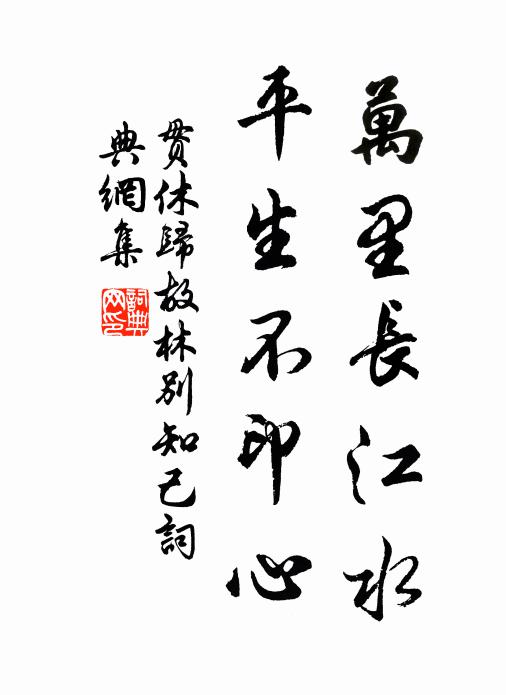 萬里長江水
平生不印心
貫休歸故林別知己詞
典網集
詞典網印